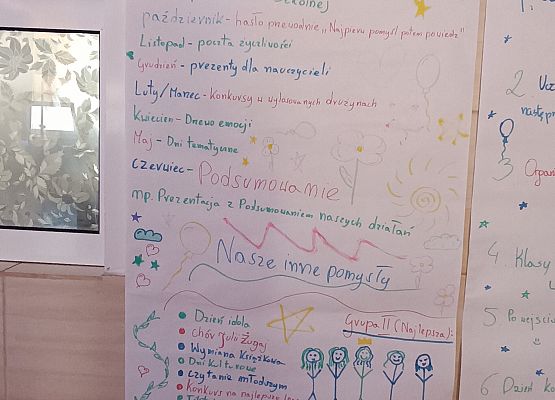 październik - hasło przewodnie „Najpierw pomyśl potem powiedz"
Listopad - poczta życzliwości
Grudzień - prezenty dla nauczycieli
Luty/Marzec - Konkursy w wylosowanych drużynach
Kwiecień - Drzewo emocji
Maj - Dni tematyczne
Czerwiec - Podsumowanie
np. Prezentacja z Podsumowaniem naszych działań
Nasze inne pomysły
Dzień idola
Chór Julii Żugaj
Wymiana Książkowa
Dni Kulturowe
Czytanie młodszym
Konkurs na najlepszą
Grupa II (Najlepsza):
1.
2. Ucz
następn
3 Organ
4. Klasy
5
6 Dzień